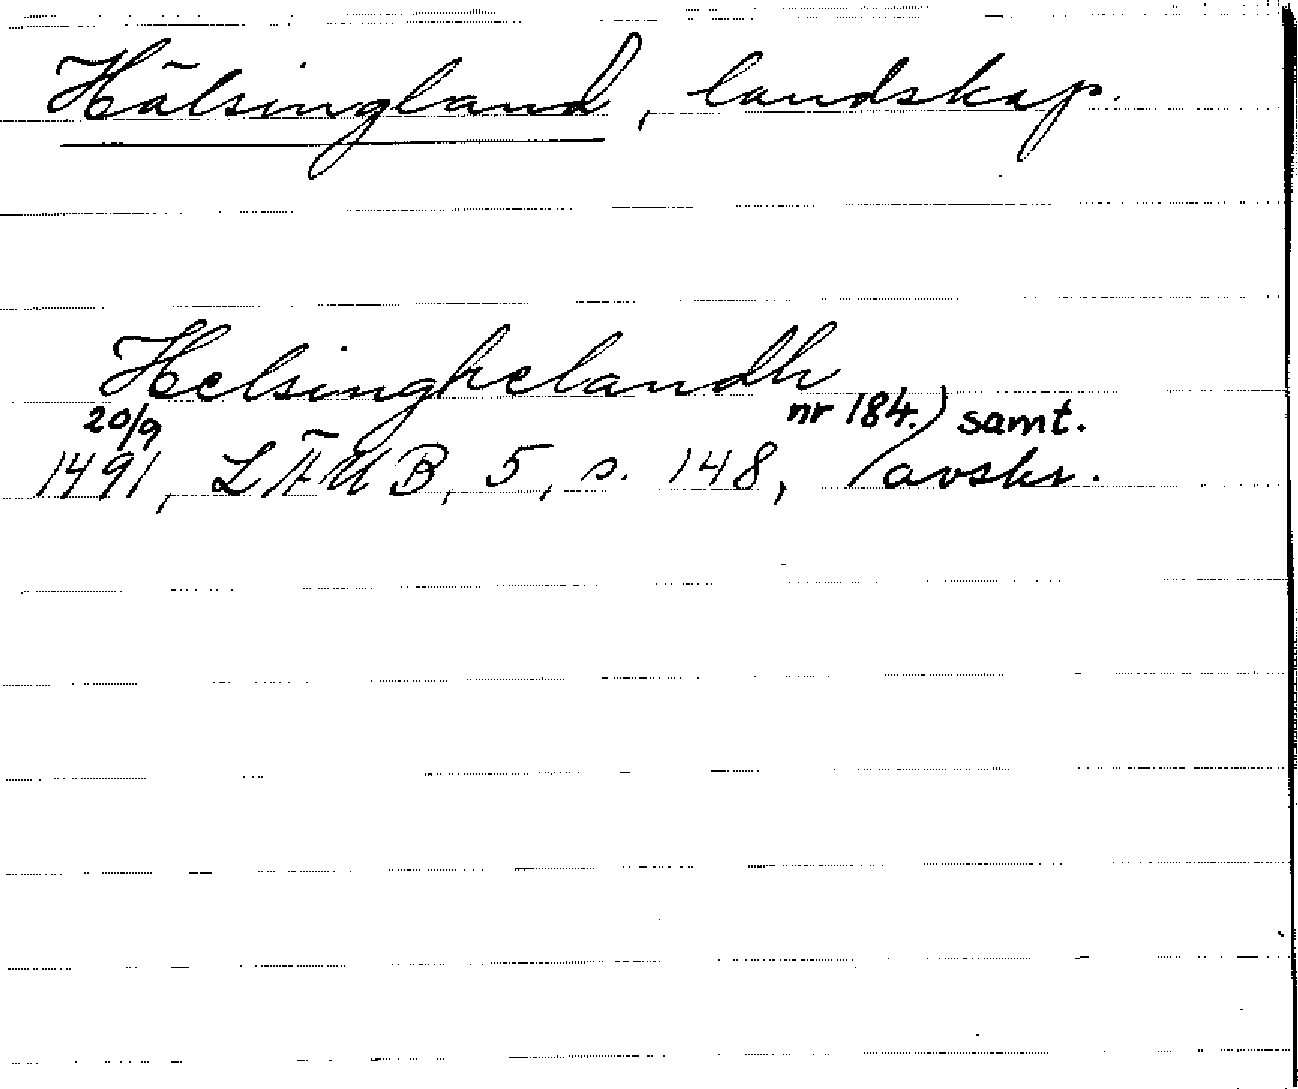 Hälsingland, landskap.
Helsinghelandh
20/9 nr 184.) samt.
1491, LÄUB, 5, s. 148, avskr.